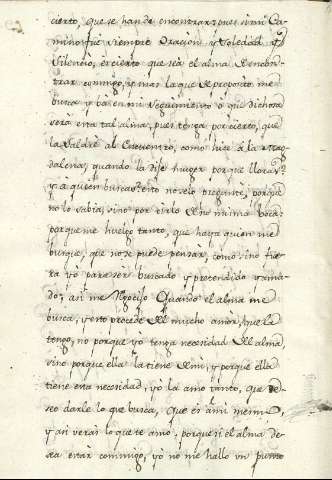 cierto, que se han de encontrar: pues si mi Ca-
mino fue siempre oracion, y Soledad, y
Silencio, es cierto que sea el alma se encon-
trar conmigo, y mas la que de proposito me
busca, y va en mi seguimiento, ò que dichosa
será esta tal alma, pues tenga por cierto, que
la Saldrè al Encuentro, como hice a la Mag-
dalena, quando la dije muger porque lloras?
y a quien buscas? esto no se lo pregunte, porque
no lo sabia, sino por oirlo de su misma boca,
porque me huelgo tanto, que haya quien me
busque, que no se puede pensar, como sino fue-
ra yo para ser buscado, y pretendido, y ama-
do; asi me Rgocijo Quando el alma me
busca, y esto procede del mucho amor, que la
tengo, no porque yo tenga necesidad del alma,
sino porque ella la tiene de mi, y porque ella
tiene esta necesidad, yo la amo tanto, que de-
seo darle lo que busca, que es a mi mesmo,
y asi veràs lo que te amo, porque si el alma de-
sea estar conmigo, yo no me hallo un punto